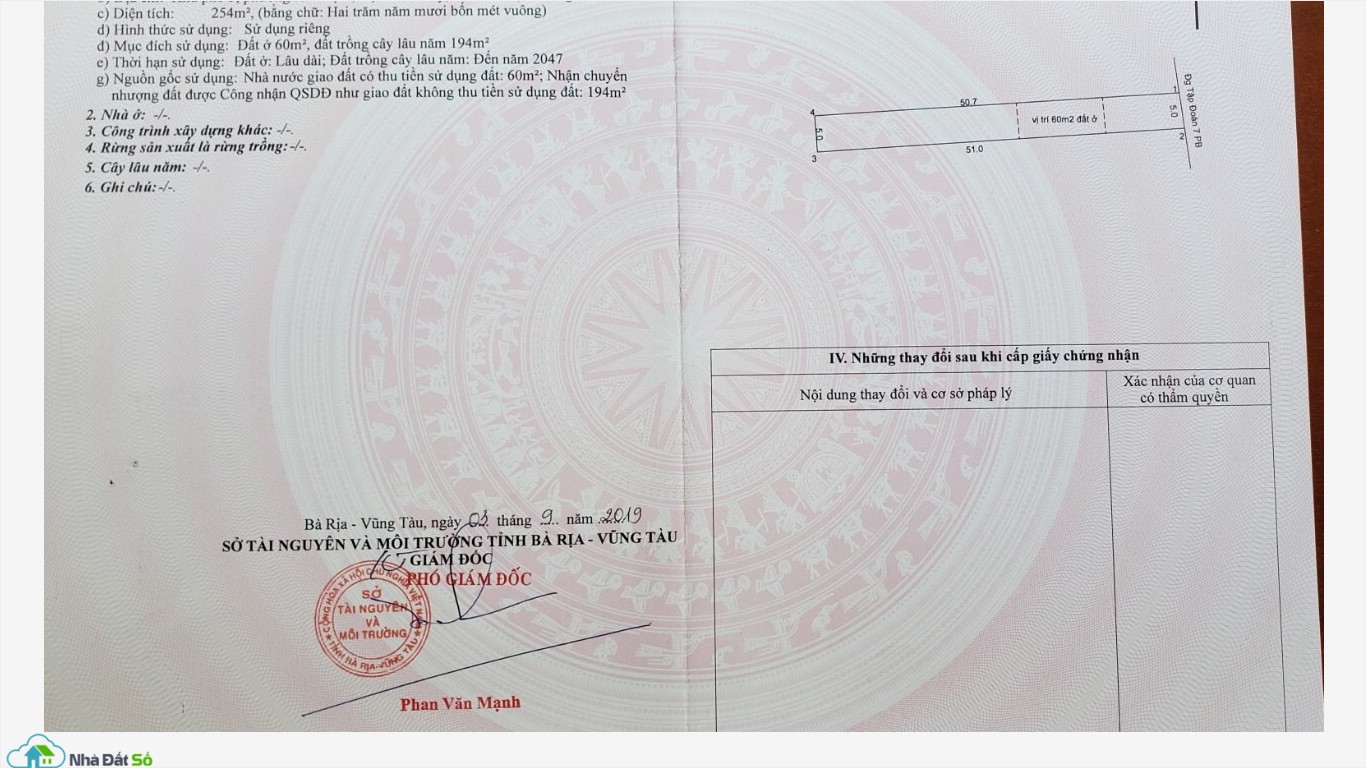 c) Diện tích: 254m², (bằng chữ: Hai trăm năm mươi bốn mét vuông)
d) Hình thức sử dụng: Sử dụng riêng
đ) Mục đích sử dụng: Đất ở 60m², đất trồng cây lâu năm 194m²
e) Thời hạn sử dụng: Đất ở: Lâu dài; Đất trồng cây lâu năm: Đến năm 2047
g) Nguồn gốc sử dụng: Nhà nước giao đất có thu tiền sử dụng đất: 60m²; Nhận chuyển
nhượng đất được Công nhận QSDĐ như giao đất không thu tiền sử dụng đất: 194m²
2. Nhà ở: -/-.
3. Công trình xây dựng khác: -/-.
4. Rừng sản xuất là rừng trồng:-/-.
5. Cây lâu năm: -/-.
6. Ghi chú:-/-.
Bà Rịa - Vũng Tàu, ngày 03 tháng 9.. năm 2019
SỞ TÀI NGUYÊN VÀ MÔI TRƯỜNG TỈNH BÀ RỊA - VŨNG TÀU
GIÁM ĐỐC
PHÓ GIÁM ĐỐC
CỘNG HÒA XÃ HỘI CHỦ NGHĨA VIỆT NAM
SỞ
TÀI NGUYÊN
VÀ
MÔI TRƯỜNG
TỈNH BÀ RỊA-VŨNG TÀU
Phan Văn Mạnh
4
50.7
1
5.0
vị trí 60m2 đất ở
5.0
Đg Tập Đoàn 7 PB
3
51.0
2
IV. Những thay đổi sau khi cấp giấy chứng nhận
Nội dung thay đổi và cơ sở pháp lý
Xác nhận của cơ quan
có thẩm quyền
Nhà Đất Số